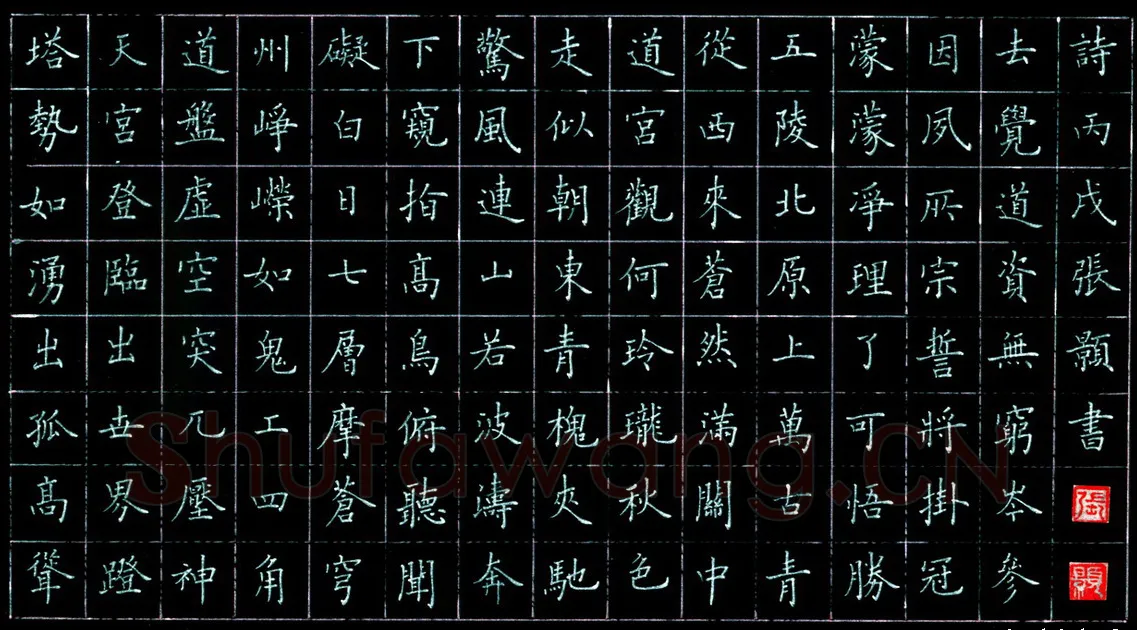 塔勢如湧出孤髙聳
天宮登臨出世界蹬
道盤虛空突兀壓神
州崢嶸如鬼工四角
礙白日七層摩蒼穹
下窺指髙鳥俯聽聞
驚風連山若波濤奔
走似朝東青槐夾馳
道宮觀何玲瓏秋色
從西來蒼然滿關中
五陵北原上萬古青
濛濛淨理了可悟勝
因夙所宗誓將掛冠
去覺道資無窮岑參
詩丙戌張顥書
張
顥
Shufawang.CN